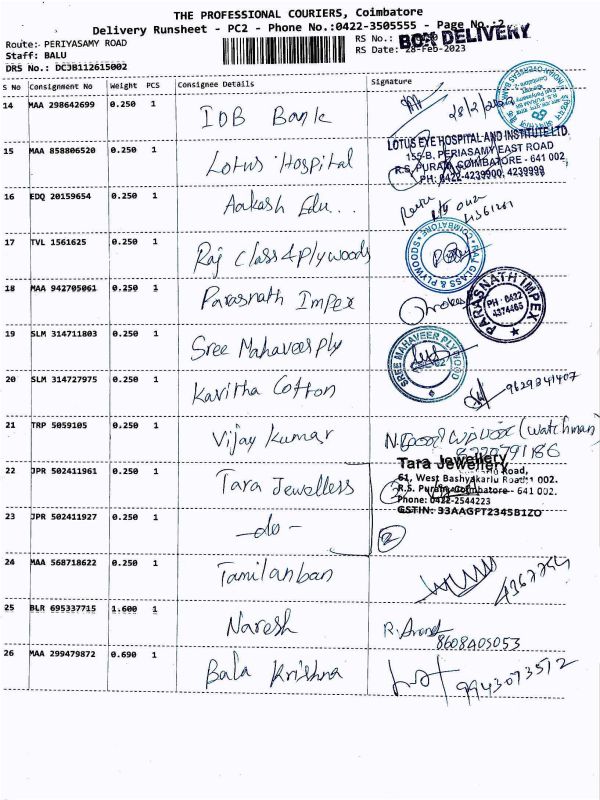 THE PROFESSIONAL COURIERS, Coimbatore
Delivery Runsheet - PC2 - Phone No.:0422-3505555 - Page No.:2
Route:- PERIYASAMY ROAD
Staff: BALU
DRS No.: DCJB112615002
RS No.:
BON DELIVERY
RS Date: 28-Feb-2023
S No Consignment No Weight PCS Consignee Details Signature
14 MAA 298642699 0.250 1 IOB Bank 28/2/2023
15 MAA 858806520 0.250 1 Lotus Hospital
LOTUS EYE HOSPITAL AND INSTITUTE LTD.
155-B, PERIASAMY EAST ROAD
R.S. PURAM, COIMBATORE - 641 002
PH: 0422-4239900, 4239999
16 EDQ 20159654 0.250 1 Aakash Edu...
17 TVL 1561625 0.250 1 Raj Class & Plywoods
RAJ GLASS & PLYWOODS COIMBATORE
18 MAA 942705061 0.250 1 Parasnath Impex
PARASNATH IMPEX
PH : 0422
4374465
19 SLM 314711803 0.250 1 Sree Mahaveer Ply
SREE MAHAVEER PLYWOOD
20 SLM 314727975 0.250 1 Kavitha Cotton
9629841407
21 TRP 5059105 0.250 1 Vijay Kumar
(Watchman)
8220791186
22 JPR 502411961 0.250 1 Tara Jewelless
Tara Jewellery
61, West Bashyakarlu Road,
R.S. Puram, Coimbatore - 641 002.
Phone: 0422-2544223
GSTIN: 33AAGFT2345B1ZO
23 JPR 502411927 0.250 1 -do-
2
24 MAA 568718622 0.250 1 Tamilanban
25 BLR 695337715 1.600 1 Naresh
R. Anand
8608405053
26 MAA 299479872 0.690 1 Bala Krishna
9943073512